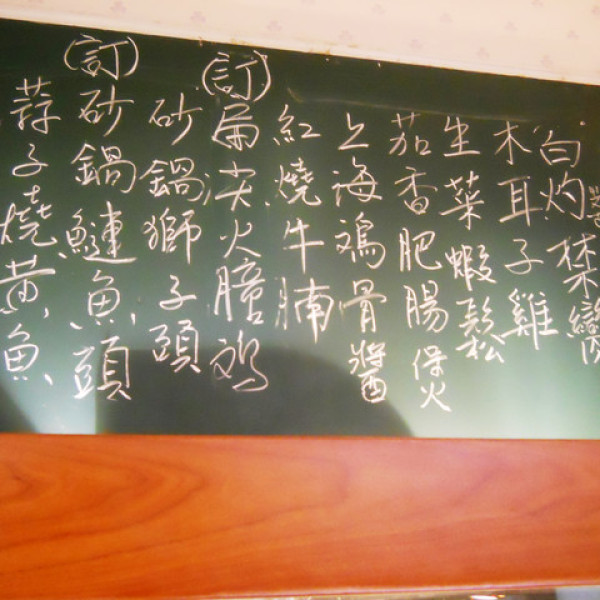 白灼禁臠
木耳子雞
生菜蝦鬆
茄香肥腸煲
上海鸡骨醬
紅燒牛腩
(訂)扁尖火膧鸡
砂鍋獅子頭
(訂)砂鍋鰱魚頭
蒜子燒黃魚